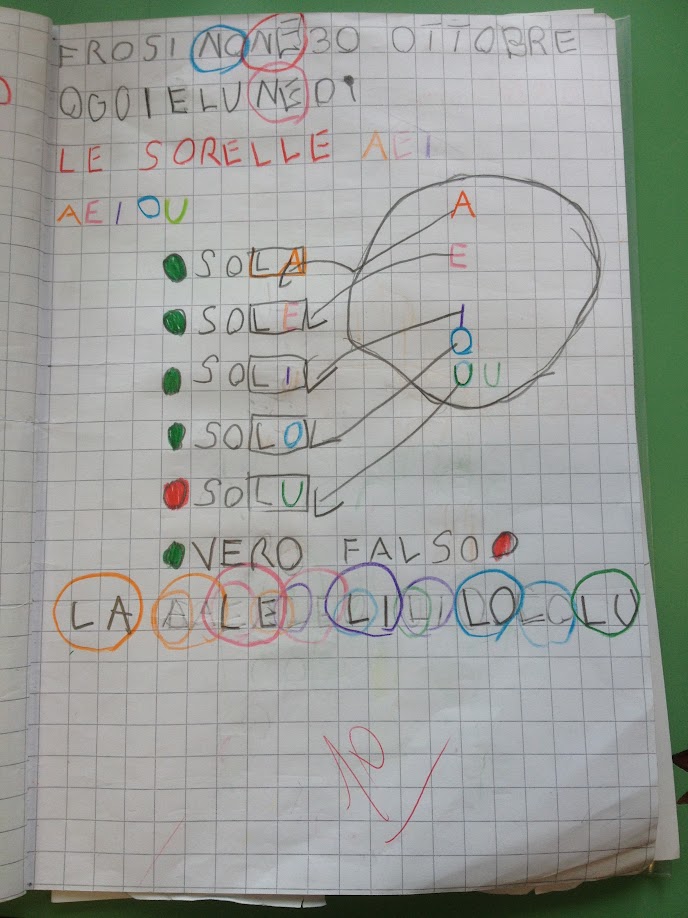 FROSINONE 30 OTTOBRE
OGGI E LUNEDI
LE SORELLE AEI
AEIOU
A
SOLA
E
SOLE
I
SOLI
O
U U
SOLO
SOLU
VERO FALSO
LA LE LI LO LU
10